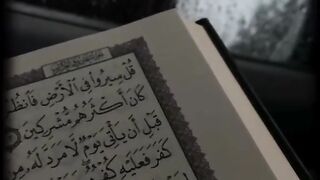 قُلْ سِيرُوا۟ فِى ٱلْأَرْضِ فَٱنظُ
كَانَ أَكْثَرُهُم مُّشْرِكِينَ
قَبْلِ أَن يَأْتِىَ يَوْمٌ لَّا مَرَدَّ لَهُۥ مِنَ
كَفَرَ فَعَلَيْهِ كُفْرُهُ